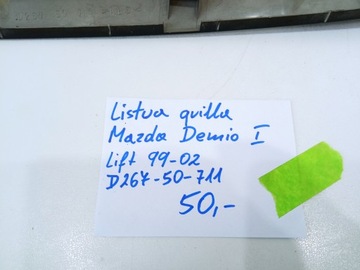 Listva grilla
Mazda Demio I
Lift 99-02
D267-50-711
50,-